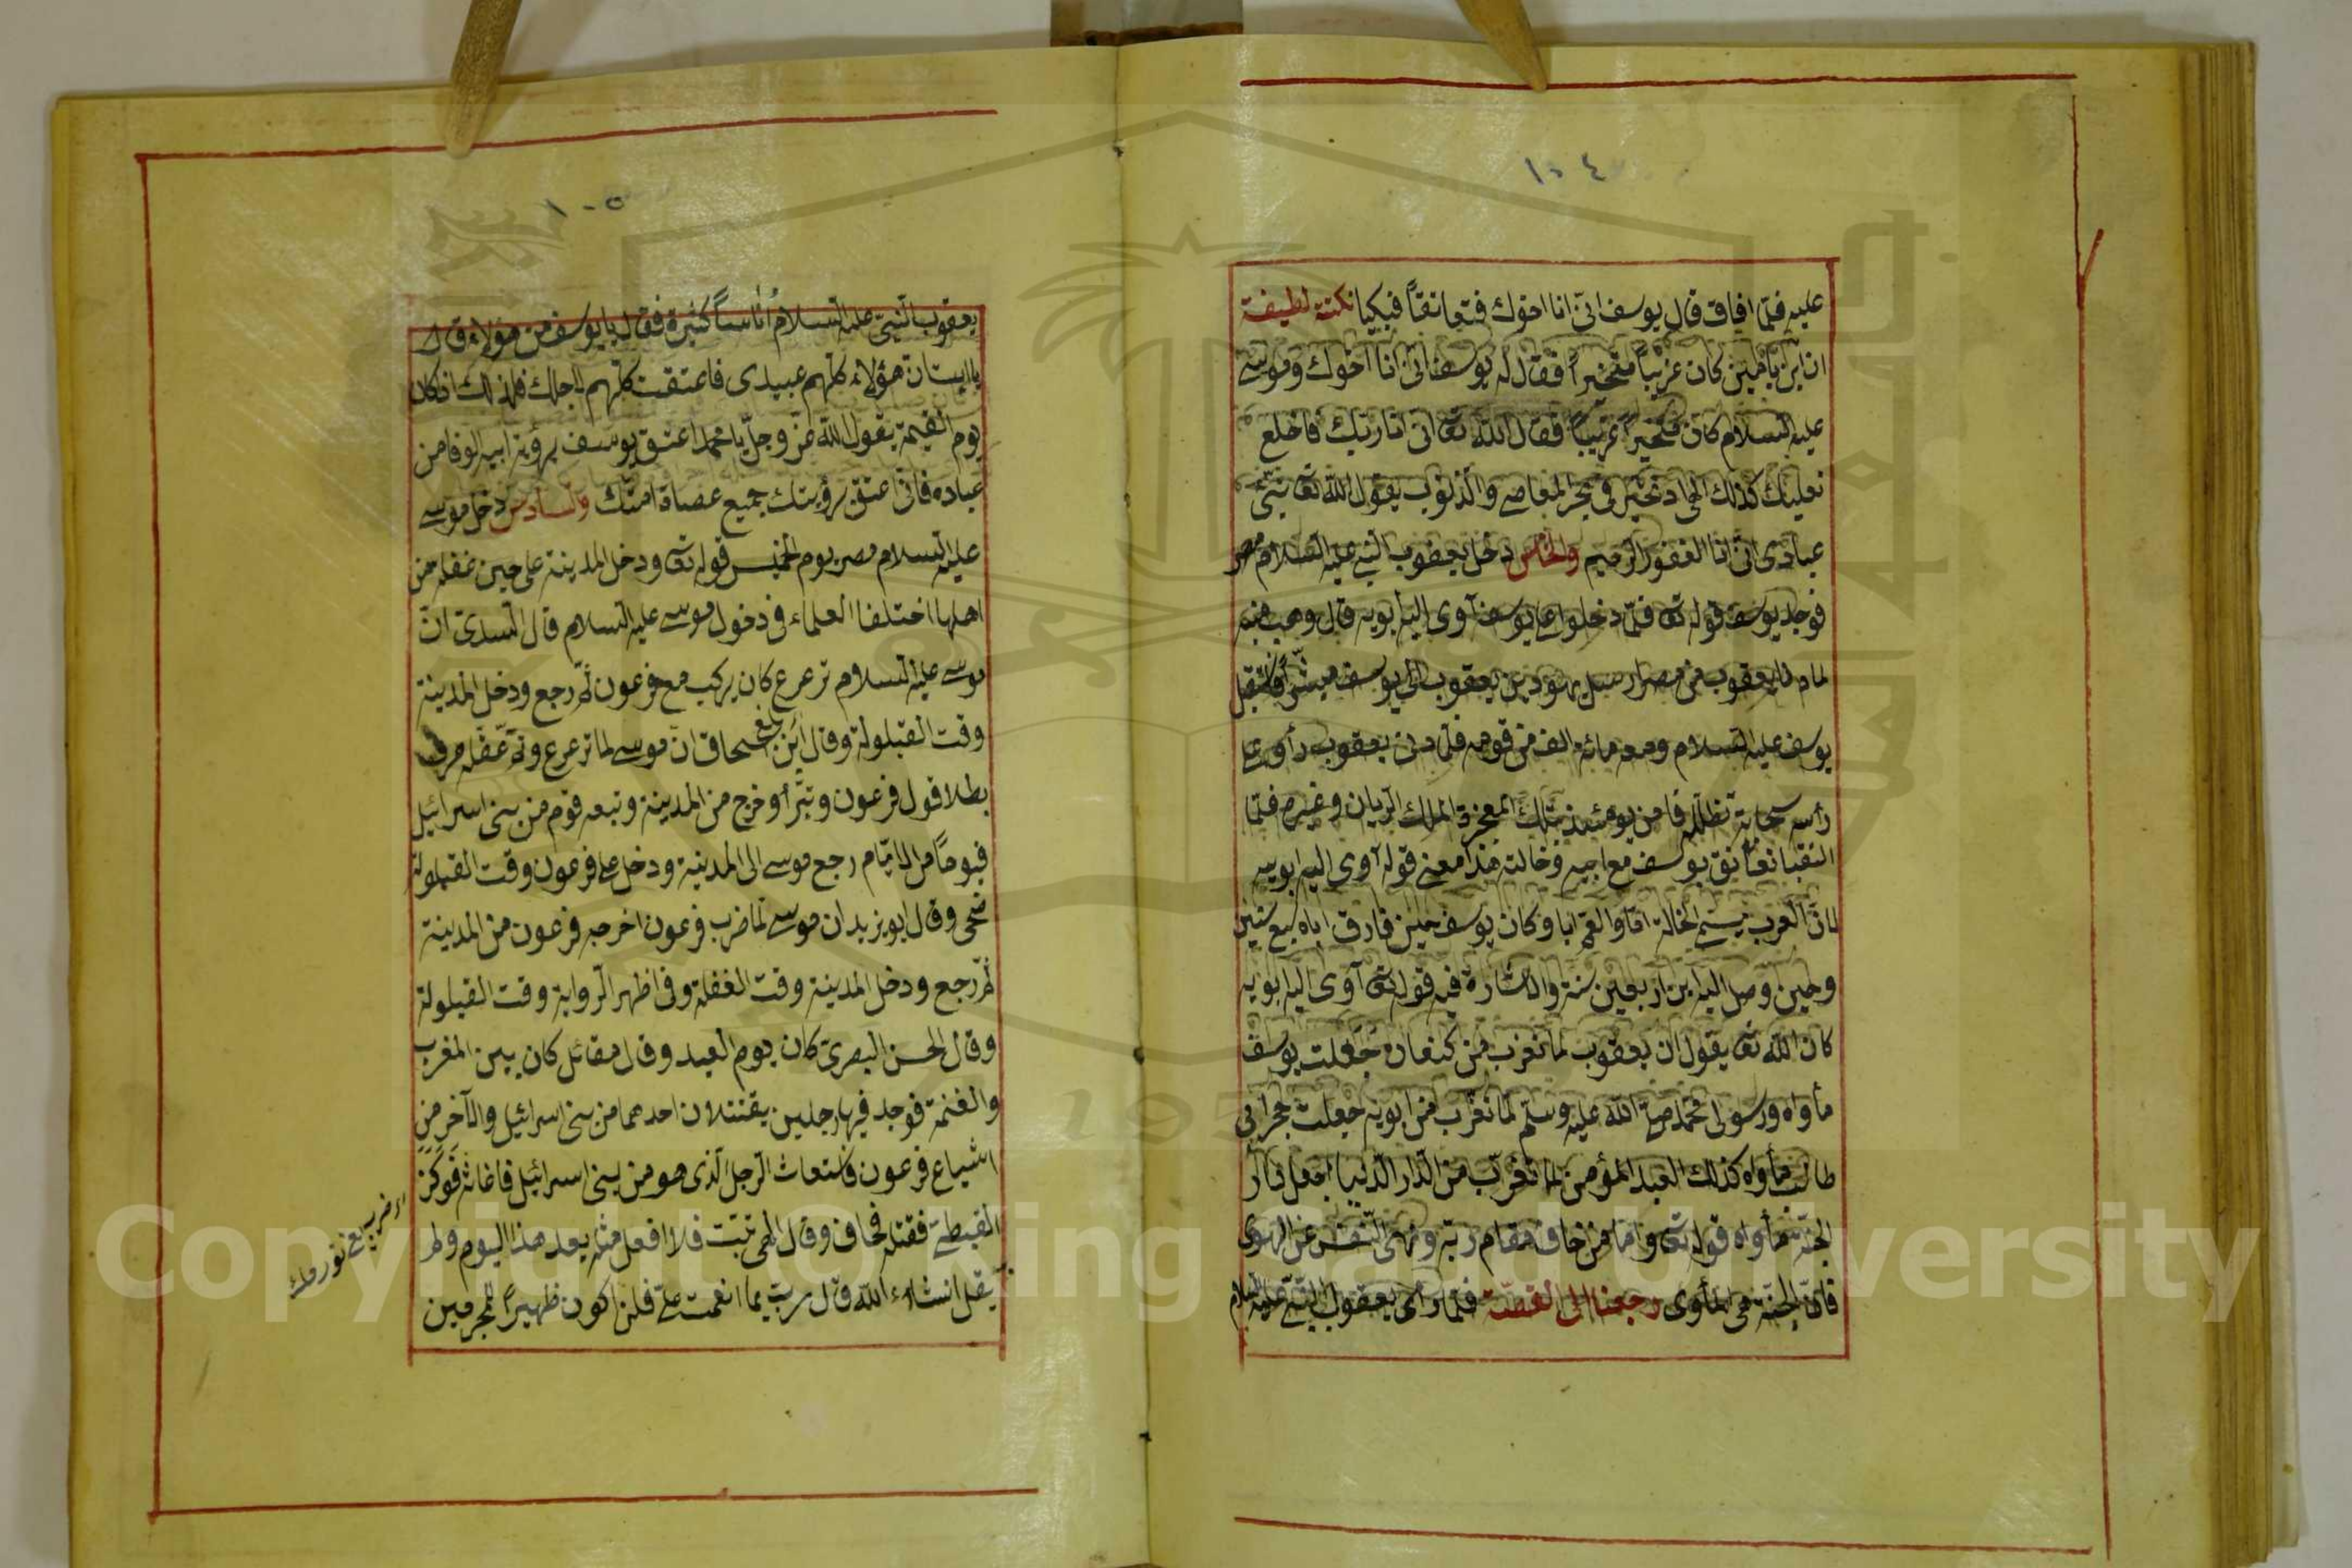 ١٠٤
عليه فلمّا افاق قال يوسف انّى انا اخوك فتعانقاً فبكيا نكتة لطيفة
ان ابن يامين كان غريباً متحيّراً فقال له يوسف انى انا اخوك وموسى
عليه السلام كان متحيراً غريباً فقال الله تعا انى انا ربك فاخلع
نعليك كذلك العاد تحيّر فى بحر المعاصى والذنوب يقول الله تعا نبّئ
عبادى انّى انا الغفور الرحيم والخامس دخل يعقوب النبى عليه السلام مصر
فوجد يوسف قوله تعا فلمّا دخلوا على يوسف آوى اليه ابويه قال وهب بن منبه
لما دنا يعقوب من مصر ارسل يهودا بن يعقوب الى يوسف مبشّراً فاستقبل
يوسف عليه السلام ومعه مائة الف من قومه فلمّا دنى يعقوب رأوى على
رأسه سحابة تظلّله فامن يومئذ بتلك المعجزة الملك الريان وغيره فلمّا
التقيا تعانق يوسف مع ابيه وخالته هذا معنى قوله آوى اليه ابويه
لانّ العرب يسمى الخالة امّا والعمّ ابا وكان يوسف حين فارق اباه سبع سنين
وحين وصل اليه ابن اربعين سنة والاشارة فيه قوله تعا آوى اليه ابويه
كان الله تعا يقول ان يعقوب لما تغرب من كنعان جعلت يوسف
مأواه ورسولى محمد صلى الله عليه وسلم لما تغرب من ابويه جعلت حجر ابى
طالب مأواه كذلك العبد المؤمن لما تغرب من الدار الدنيا اجعل دار
الجنّة مأواه قوله تعا واما من خاف مقام ربّه ونهى النّفس عن الهوى
فانّ الجنّة هى المأوى رجعنا الى القصّة فلمّا رأى يعقوب النبى عليه السلام
١٠٥
يعقوب النّبىّ عليه السلام اُناساً كثيرة فقال يا يوسف من هؤلاء قال
يا ابت ان هؤلاء كلّهم عبيدى فاعتقت كلّهم لاجلك فلذلك اذ كان
يوم القيمة يقول الله عزّ وجلّ يا محمد اعتق يوسف برؤية ابيه الوفا من
عباده فانّى اعتق برؤيتك جميع عصاة امتك والسادس دخل موسى
عليه السلام مصر يوم الخميس قوله تعا ودخل المدينة على حين غفلة من
اهلها اختلفا العلماء فى دخول موسى عليه السلام قال السدىّ انّ
موسى عليه السلام ترعرع كان يركب مع فرعون ثمّ رجع ودخل المدينة
وقت القيلولة وقال ابن اسحاق انّ موسى لما ترعرع وتمّ عقله عرف
بطلا قول فرعون وتبرأ وخرج من المدينة وتبعه قوم من بنى اسرائيل
فيوماً من الايّام رجع موسى الى المدينة ودخل على فرعون وقت القيلولة
ضحى وقال ابو يزيد ان موسى لما ضرب فرعون اخرجه فرعون من المدينة
ثمّ رجع ودخل المدينة وقت الغفلة وفى اظهر الرواية وقت القيلولة
وقال الحسن البصرى كان يوم العيد وقال مقاتل كان بين المغرب
والعتمة فوجد فيها رجلين يقتتلان احدهما من بنى اسرائيل والآخر من
اشياع فرعون فاستغاث الرجل الذى هو من بنى اسرائيل فاغاثه فوكز
القبطى فقتله فخاف وقال الهى تبت فلا افعل مثله بعد هذا اليوم ولم
يقل انشاء الله قال ربّ بما انعمت علىّ فلن اكون ظهيراً للمجرمين